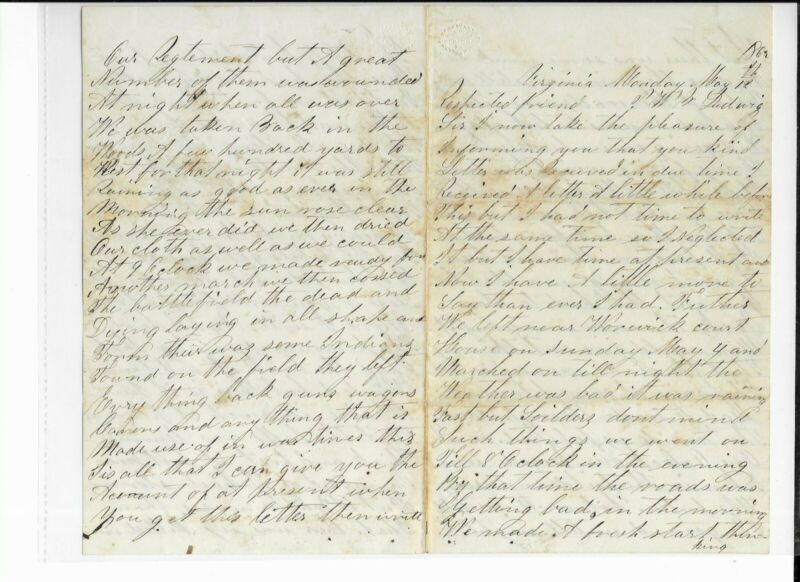 Our Regtement but A great
Number of them was wounded
At night when all was over
We was taken Back in the
Woods A few hundred yards to
West for that night it was still
Raining as good as ever in the
Morning the sun rose clear
As she ever did we then dried
Our cloth as well as we could
At 9 Oclock we made ready for
Another march we then cossed
The battlefield the dead and
Dying laying in all shape and
Form their waz some Indians
Found on the field they left
Evry thing back guns wagons
Canons and any thing that is
Made use of in wartimes this
Is all that I can give you the
Account of at present when
You get this letter then write
1862
Virginia Monday May
Respected friend Ludwig
Sir I now take the pleasure of
Informing you that you kind
Letter was Received in due time I
Received A letter A little while before
This but I had not time to write
At the same time so I Neglected
It but I have time at present and
Now I have A little more to
Say than ever I had. Futher
We left near Worwick court
House on Sunday May 4 and
Marched on till night the
Weather was bad it was raining
Fast but Soilders dont mind
Such things we went on
Till 8 Oclock in the evening
By that time the roads was
Getting bad, in the morning
We made A fresh start, thin-
king